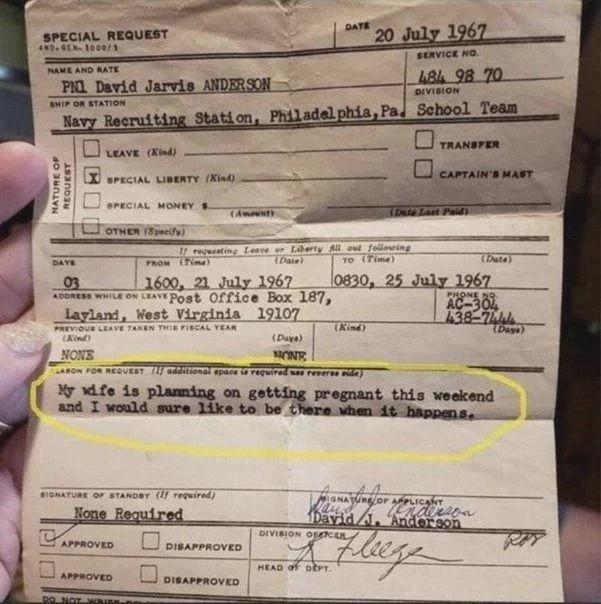 SPECIAL REQUEST
DATE 20 July 1967
NAME AND RATE
SERVICE NO.
PN1 David Jarvis ANDERSON
484 98 70
SHIP OR STATION
DIVISION
Navy Recruiting Station, Philadelphia, Pa. School Team
NATURE OF REQUEST
LEAVE (Kind)
TRANSFER
X SPECIAL LIBERTY (Kind)
CAPTAIN'S MAST
SPECIAL MONEY $
(Amount) (Date Last Paid)
OTHER (Specify)
If requesting Leave or Liberty fill out following
DAYS FROM (Time) (Date) TO (Time) (Date)
03 1600, 21 July 1967 0830, 25 July 1967
ADDRESS WHILE ON LEAVE Post Office Box 187,
PHONE NO.
AC-304
Layland, West Virginia 19107
438-7444
PREVIOUS LEAVE TAKEN THIS FISCAL YEAR
(Kind) (Days) (Kind) (Days)
NONE NONE
REASON FOR REQUEST (If additional space is required use reverse side)
My wife is planning on getting pregnant this weekend
and I would sure like to be there when it happens.
SIGNATURE OF STANDBY (If required)
SIGNATURE OF APPLICANT
None Required
David J. Anderson
David J. Anderson
APPROVED DISAPPROVED
DIVISION OFFICER
HEAD OF DEPT.
APPROVED DISAPPROVED
DO NOT WRITE